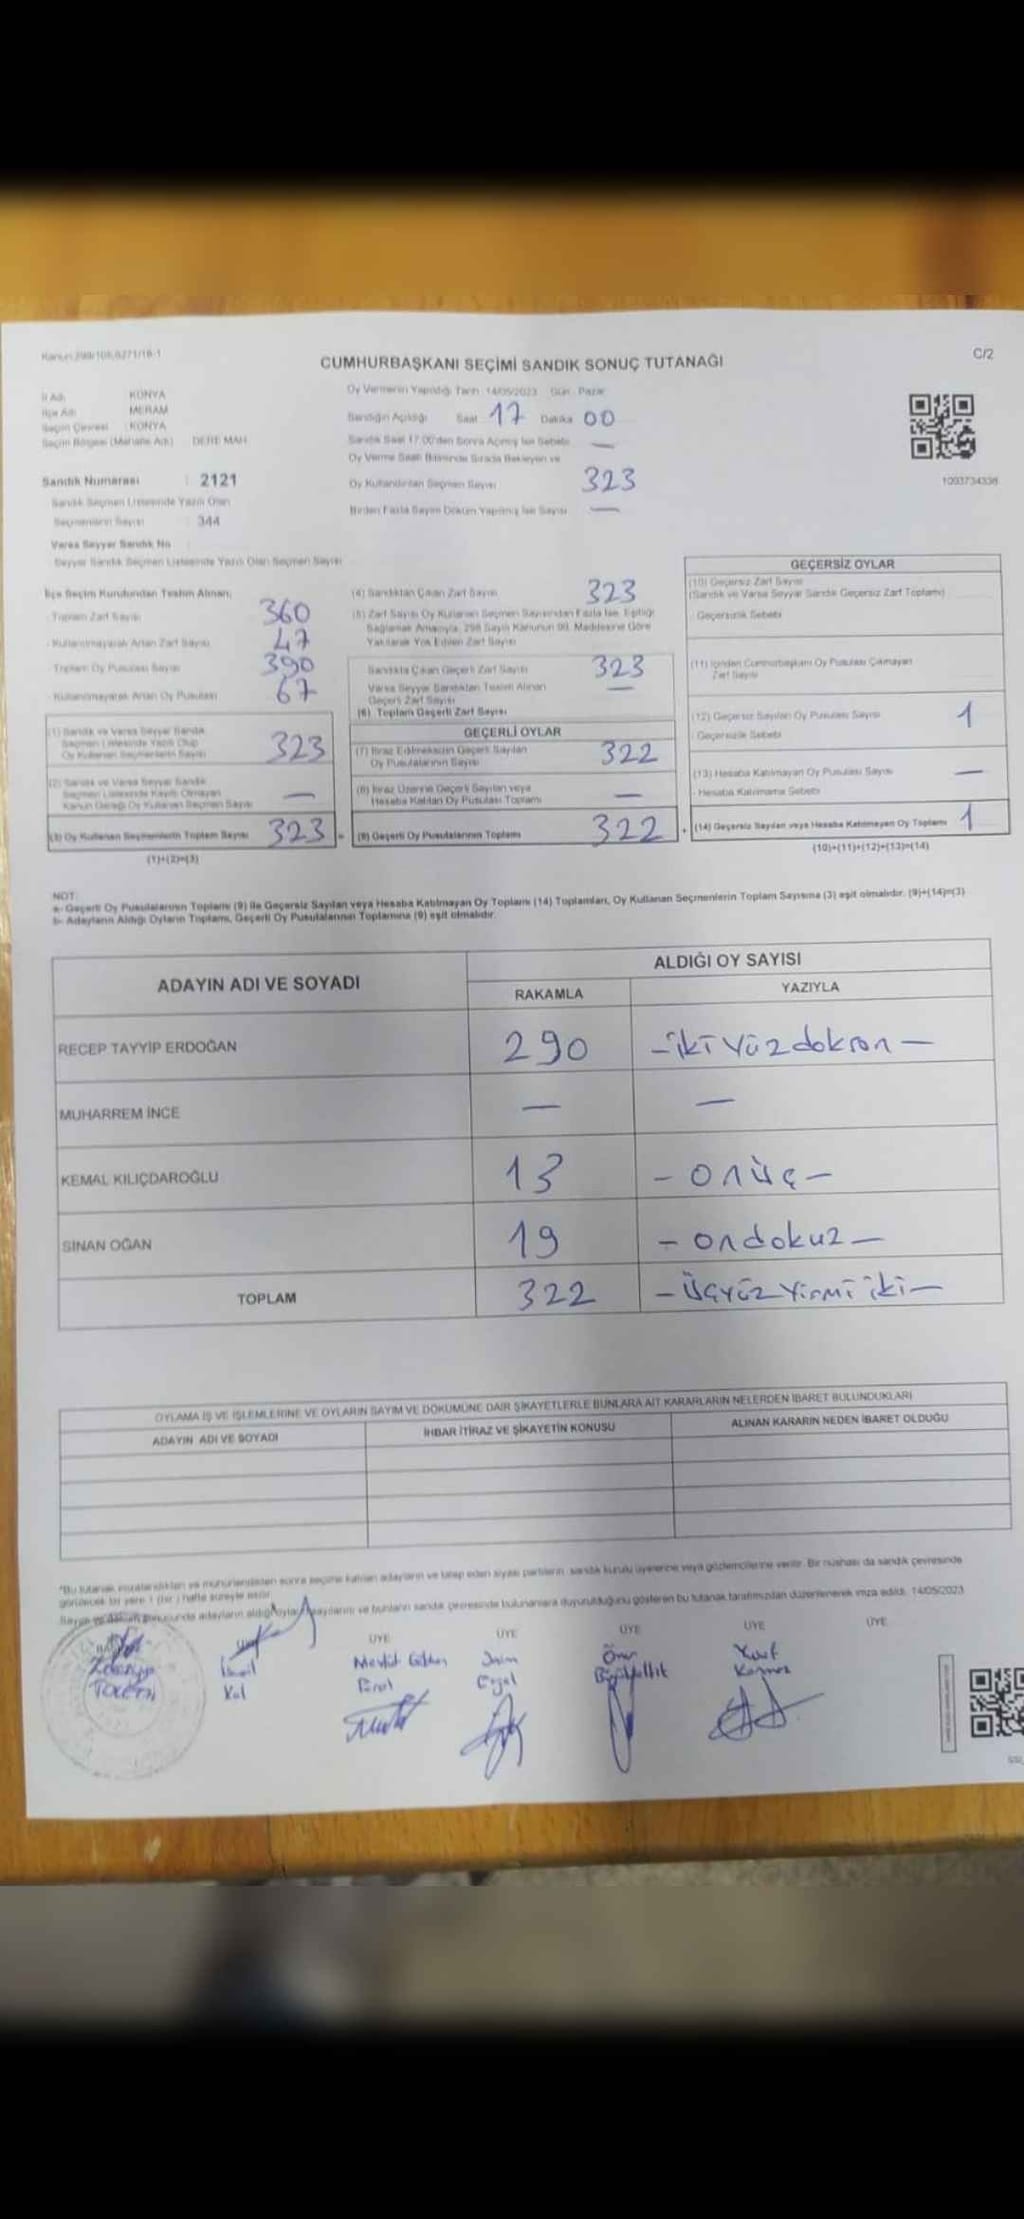 Kanun:298/105,6271/18-1
C/2
CUMHURBAŞKANI SEÇİMİ SANDIK SONUÇ TUTANAĞI
İl Adı KONYA
İlçe Adı MERAM
Seçim Çevresi : KONYA
Seçim Bölgesi (Mahalle Adı) DERE MAH
Sandık Numarası : 2121
Sandık Seçmen Listesinde Yazılı Olan
Seçmenlerin Sayısı : 344
Varsa Seyyar Sandık No
Seyyar Sandık Seçmen Listesinde Yazılı Olan Seçmen Sayısı
Oy Vermenin Yapıldığı Tarih: 14/05/2023 Gün: Pazar
Sandığın Açıldığı Saat 17 Dakika 00
Sandık Saat 17.00'den Sonra Açılmış İse Sebebi —
Oy Verme Saati Bitiminde Sırada Bekleyen ve
Oy Kullandırılan Seçmen Sayısı 323
Birden Fazla Sayım Döküm Yapılmış İse Sayısı —
1093734338
İlçe Seçim Kurulundan Teslim Alınan;
- Toplam Zarf Sayısı 360
- Kullanılmayarak Artan Zarf Sayısı 47
- Toplam Oy Pusulası Sayısı 390
- Kullanılmayarak Artan Oy Pusulası 67
(1) Sandık ve Varsa Seyyar Sandık
Seçmen Listesinde Yazılı Olup
Oy Kullanan Seçmenlerin Sayısı 323
(2) Sandık ve Varsa Seyyar Sandık
Seçmen Listesinde Kayıtlı Olmayan
Kanun Gereği Oy Kullanan Seçmen Sayısı —
(3) Oy Kullanan Seçmenlerin Toplam Sayısı 323 =
(1)+(2)=(3)
(4) Sandıktan Çıkan Zarf Sayısı 323
(5) Zarf Sayısı Oy Kullanan Seçmen Sayısından Fazla İse, Eşitliği
Sağlamak Amacıyla, 298 Sayılı Kanunun 98. Maddesine Göre
Yakılarak Yok Edilen Zarf Sayısı
Sandıkta Çıkan Geçerli Zarf Sayısı 323
Varsa Seyyar Sandıktan Teslim Alınan
Geçerli Zarf Sayısı —
(6) Toplam Geçerli Zarf Sayısı
GEÇERLİ OYLAR
(7) İtiraz Edilmeksizin Geçerli Sayılan
Oy Pusulalarının Sayısı 322
(8) İtiraz Üzerine Geçerli Sayılan veya
Hesaba Katılan Oy Pusulası Toplamı —
(9) Geçerli Oy Pusulalarının Toplamı 322 +
GEÇERSİZ OYLAR
(10) Geçersiz Zarf Sayısı
(Sandık ve Varsa Seyyar Sandık Geçersiz Zarf Toplamı)
- Geçersizlik Sebebi
(11) İçinden Cumhurbaşkanı Oy Pusulası Çıkmayan
Zarf Sayısı
(12) Geçersiz Sayılan Oy Pusulası Sayısı 1
- Geçersizlik Sebebi
(13) Hesaba Katılmayan Oy Pusulası Sayısı —
- Hesaba Katılmama Sebebi
(14) Geçersiz Sayılan veya Hesaba Katılmayan Oy Toplamı 1
(10)+(11)+(12)+(13)=(14)
NOT:
a- Geçerli Oy Pusulalarının Toplamı (9) ile Geçersiz Sayılan veya Hesaba Katılmayan Oy Toplamı (14) Toplamları, Oy Kullanan Seçmenlerin Toplam Sayısına (3) eşit olmalıdır. (9)+(14)=(3)
b- Adayların Aldığı Oyların Toplamı, Geçerli Oy Pusulalarının Toplamına (9) eşit olmalıdır.
ADAYIN ADI VE SOYADI ALDIĞI OY SAYISI
RAKAMLA YAZIYLA
RECEP TAYYİP ERDOĞAN 290 -iki yüz doksan-
MUHARREM İNCE — —
KEMAL KILIÇDAROĞLU 13 -onüç-
SİNAN OĞAN 19 -ondokuz-
TOPLAM 322 -üçyüz yirmi iki-
OYLAMA İŞ VE İŞLEMLERİNE VE OYLARIN SAYIM VE DÖKÜMÜNE DAİR ŞİKAYETLERLE BUNLARA AİT KARARLARIN NELERDEN İBARET BULUNDUKLARI
ADAYIN ADI VE SOYADI İHBAR İTİRAZ VE ŞİKAYETİN KONUSU ALINAN KARARIN NEDEN İBARET OLDUĞU
*Bu tutanak imzalandıktan ve mühürlendikten sonra seçime katılan adayların ve talep eden siyasi partilerin sandık kurulu üyelerine veya gözlemcilerine verilir. Bir nüshası da sandık çevresinde
görülecek bir yere 1 (bir) hafta süreyle asılır.
Sayım ve döküm sonucunda adayların aldığı oyların sayılarını ve bunların sandık çevresinde bulunanlara duyurulduğunu gösteren bu tutanak tarafımızdan düzenlenerek imza edildi. 14/05/2023
ÜYE ÜYE ÜYE ÜYE ÜYE
İsmail
Kol
Mevlüt
Birol
Ömer
Yusuf
Korkmaz